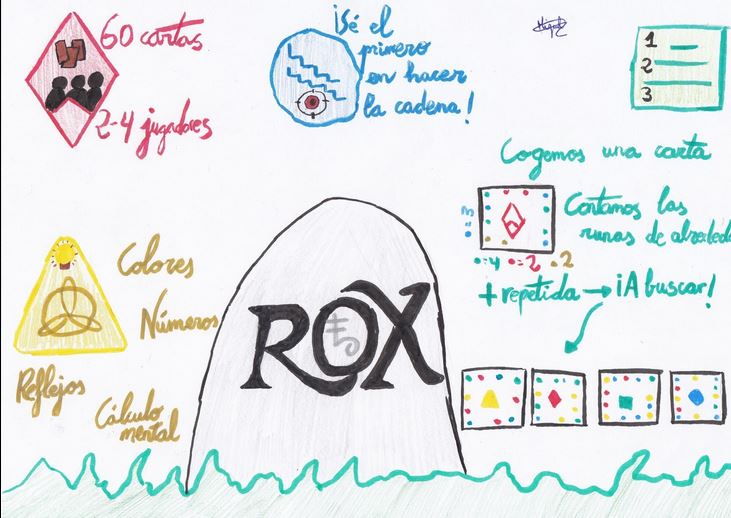 60 cartas
2-4 jugadores
¡Sé el
primero
en hacer
la cadena!
1
2
3
Cogemos una carta
Contamos las
runas de alrededo
:3
:=4 :=2 :2
+ repetida → ¡A buscar!
Colores
Números
Reflejos
Cálculo
mental
ROX